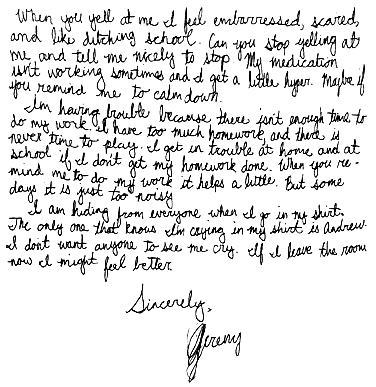 When you yell at me I feel embarressed, scared,
and like ditching school. Can you stop yelling at
me and tell me nicely to stop My medication
isn't working sometimes and I get a little hyper. Maybe if
you remind me to calm down.
I'm having trouble because there isn't enough time to
do my work. I have too much homework and there is
never time to play. I get in trouble at home and at
school if I don't get my homework done. When you re-
mind me to do my work it helps a little. But some
days it is just too noisy
I am hiding from everyone when I go in my shirt.
The only one that knows I'm crying in my shirt is Andrew.
I don't want anyone to see me cry. If I leave the room
now I might feel better.
Sincerely,
Jeremy